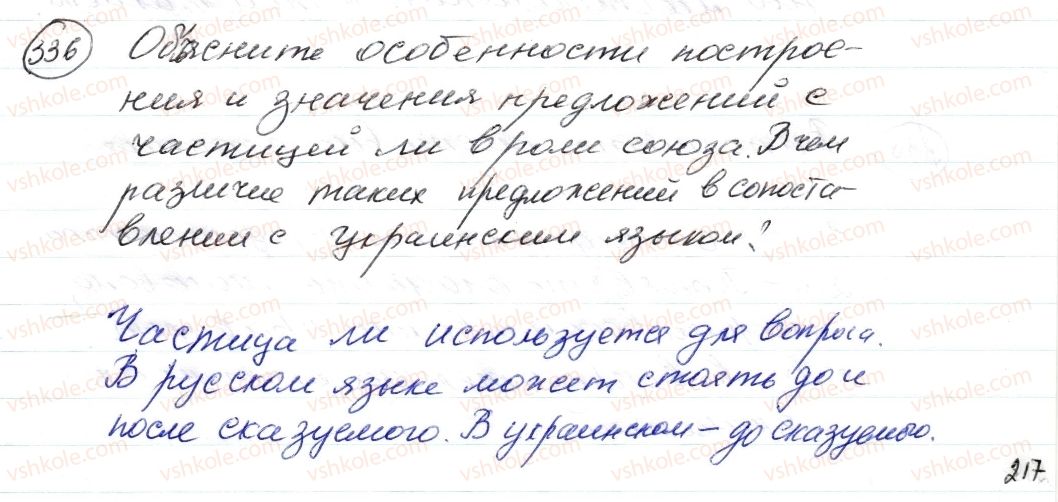 336 Объясните особенности построе-
ния и значения предложений с
частицей ли в роли союза. В чем
различие таких предложений в сопоста-
влении с украинским языком?
Частица ли используется для вопроса.
В русском языке может стоять до и
после сказуемого. В украинском – до сказуемого.
217